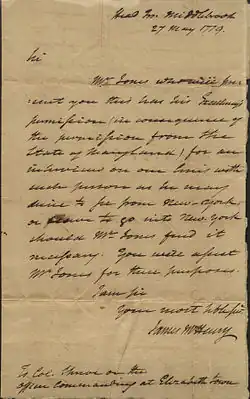 Head Qrs. Middlebrook
27 May 1779.
Sir
Mr. Jones who will pre-
sent you this has his Excellency's
permission (in consequence of
the permission from the
State of Maryland) for an
interview on our lines with
such person as he may
desire to see from New-York,
or to go into New York
should Mr. Jones find it
necessary. You will assist
Mr. Jones for these purposes.
I am Sir
Your most hble Sr.
James McHenry
To Col. Shreve or the
officer commanding at Elizabeth Town